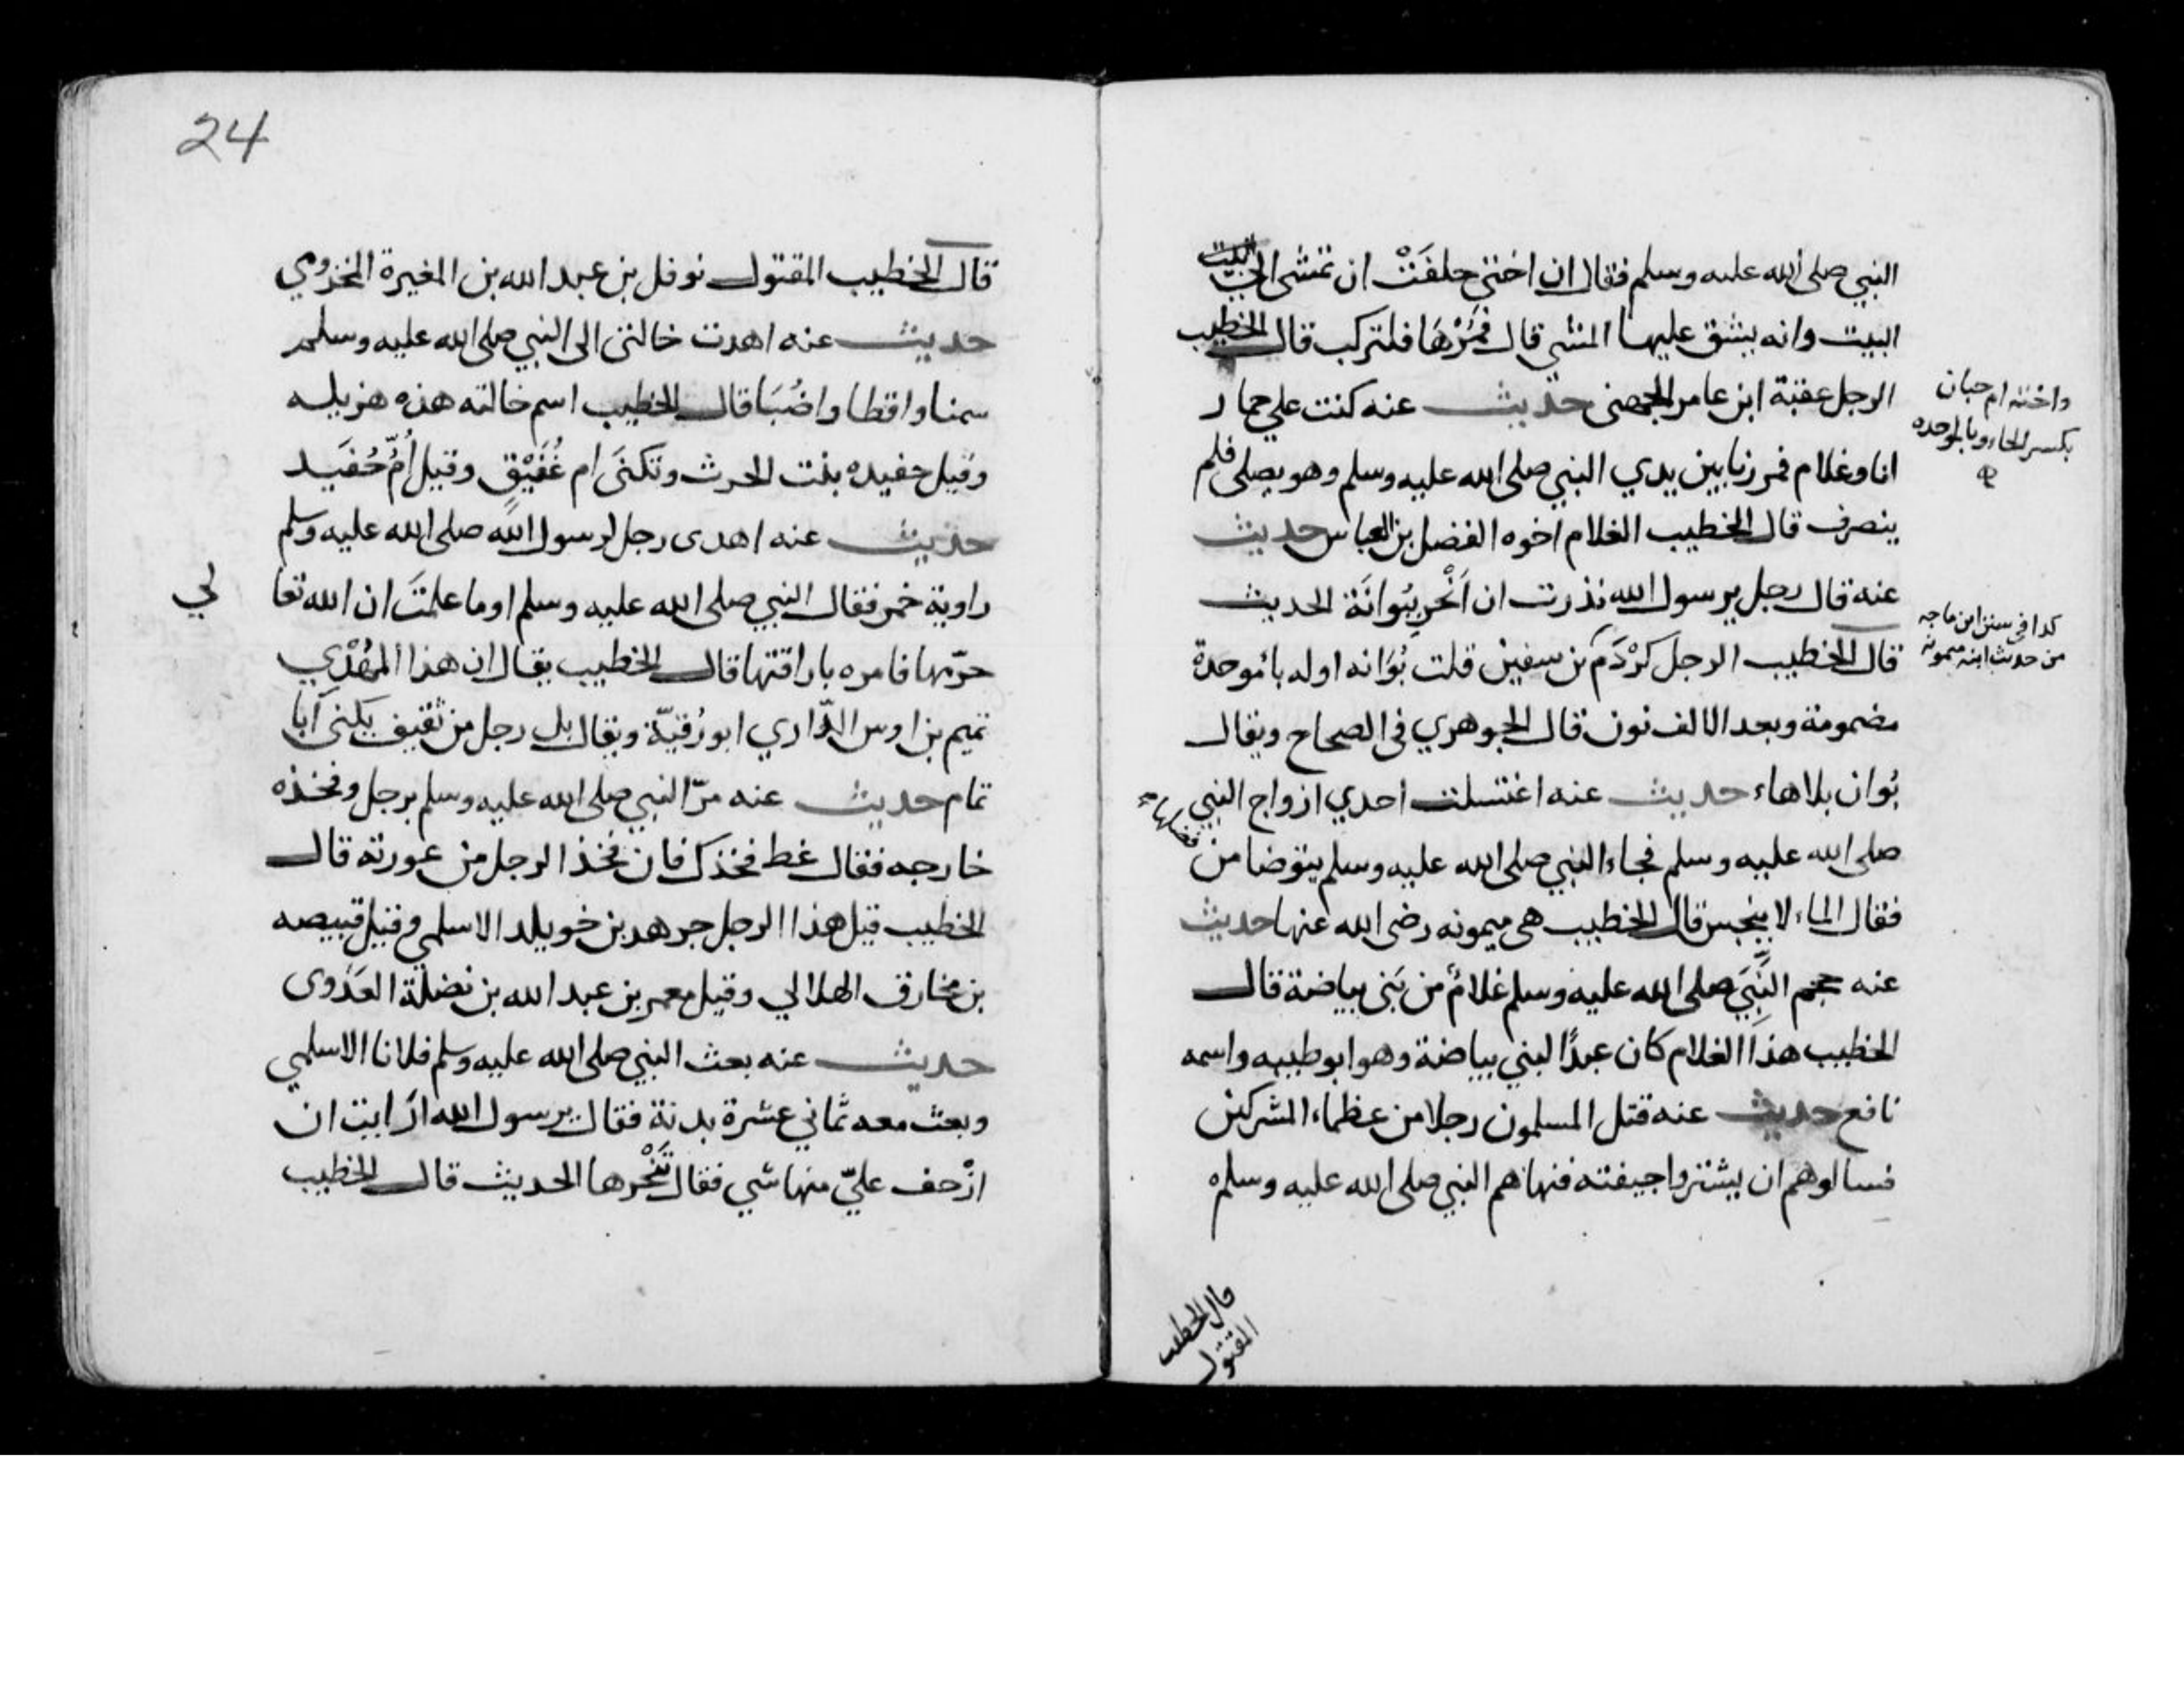 النبي صلى الله عليه وسلم فقال ان اختي حلفَتْ ان تمشى الى البيت
البيت وانه يشق عليها المشي قال فمُرْهَا فلتركب قال الخطيب
الرجل عقبة ابن عامر الجهنى حديث عنه كنت علي حمار
واخته ام حبان
بكسر الحاء وبالموحده
انا وغلام فمررنا بين يدي النبي صلى الله عليه وسلم وهو يصلى فلم
ينصرف قال الخطيب الغلام اخوه الفضل بن العباس حديث
عنه قال رجل يرسول الله نذرت ان اَنْحَر ببُوانَة الحديث
كذا في سنن ابن ماجه
من حديث ابنه ميمونه
قال الخطيب الرجل كَرْدَم بن سفين قلت بُوَانه اوله بائموحدة
مضمومة وبعد الالف نون قال الجوهري في الصحاح ويقال
بُوان بلاهاء حديث عنه اغتسلت احدي ازواج النبي
صلى الله عليه وسلم فجاء النبي صلى الله عليه وسلم يتوضا من
فقال الماء لا ينجس قال الخطيب هى ميمونه رضى الله عنها حديث
عنه حجم النَّبِيَ صلى الله عليه وسلم غلامٌ من بَنى بياضة قال
الخطيب هذا الغلام كان عبدًا لبني بياضة وهو ابو طيبه واسمه
نافع حديث عنه قتل المسلمون رجلا من عظماء المشركين
فسالوهم ان يشتروا جيفته فنهاهم النبي صلى الله عليه وسلم
قال الخطيب
المقتول
24
قال الخطيب المقتول نوفل بن عبد الله بن المغيرة المخزومي
حديث عنه اهدت خالتى الى النبي صلى الله عليه وسلم
سمنا واقطا واضُبَا قال الخطيب اسم خالته هذه هزيله
وقيل حفيده بنت الحرث وتكنَى ام عُفَيْق وقيل أُمّ حُفَيد
حديث عنه اهدى رجل لرسول الله صلى الله عليه وسلم
راوية خمر فقال النبي صلى الله عليه وسلم اوما علمتَ ان الله تعا لي
حرّمها فامره باراقتها قال الخطيب يقال ان هذا المهْدِي
تميم بن اوس الدّاري ابو رُقيّة ويقال بل رجل من ثقيف يكنى ابا
تمام حديث عنه مرّ النبي صلى الله عليه وسلم برجل وفخذه
خارجه فقال غط فخذك فان فخذ الرجل من عورته قال
الخطيب قيل هذا الرجل جرهد بن خويلد الاسلمي وقيل قبيصه
بن مخارق الهلالي وقيل معمر بن عبد الله بن نضلة العَدَوى
حديث عنه بعث النبي صلى الله عليه وسلم فلانا الاسلمي
وبعث معه ثماني عشرة بدنة فقال يرسول الله ارَايت ان
ازْحف عليّ منها شي فقال تَنْحَرها الحديث قال الخطيب